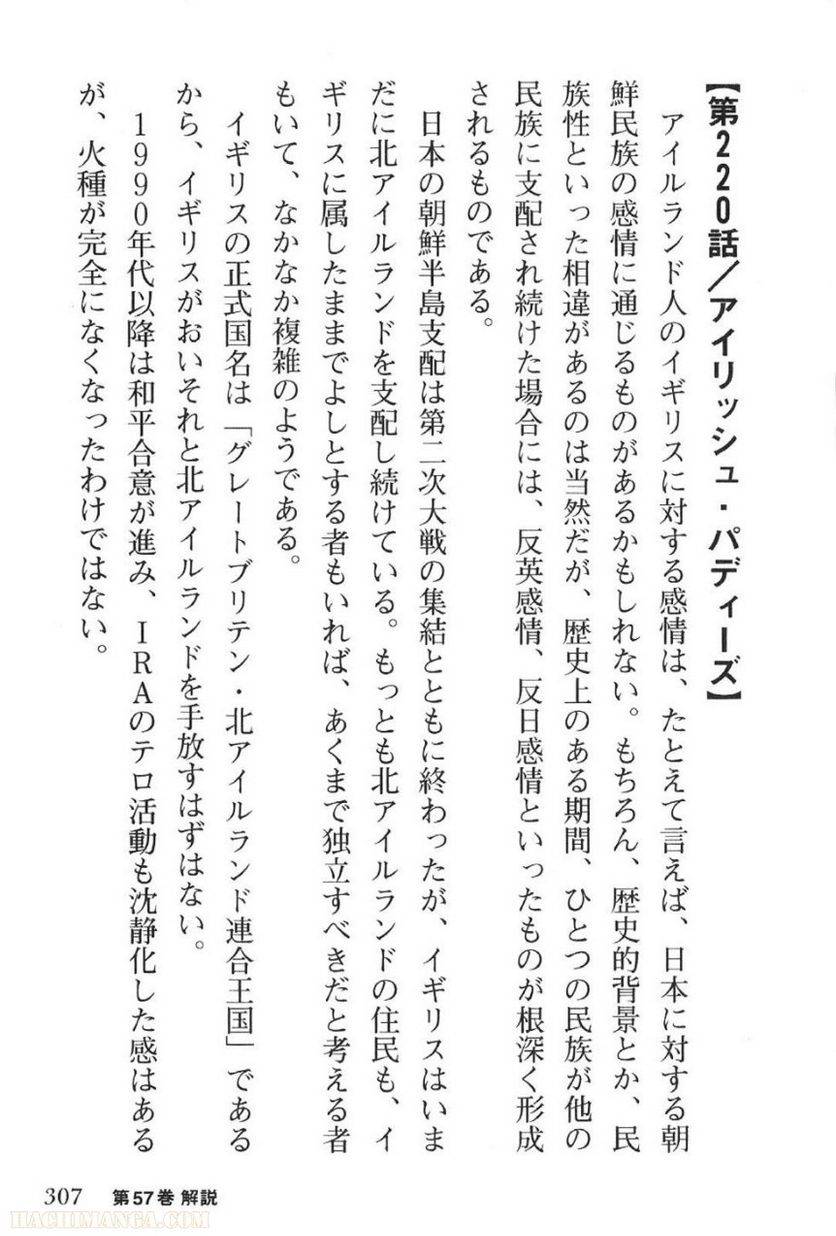 【第220話／アイリッシュ・パディーズ】
アイルランド人のイギリスに対する感情は、たとえて言えば、日本に対する朝
鮮民族の感情に通じるものがあるかもしれない。もちろん、歴史的背景とか、民
族性といった相違があるのは当然だが、歴史上のある期間、ひとつの民族が他の
民族に支配され続けた場合には、反英感情、反日感情といったものが根深く形成
されるものである。
日本の朝鮮半島支配は第二次大戦の集結とともに終わったが、イギリスはいま
だに北アイルランドを支配し続けている。もっとも北アイルランドの住民も、イ
ギリスに属したままでよしとする者もいれば、あくまで独立すべきだと考える者
もいて、なかなか複雑のようである。
イギリスの正式国名は「グレートブリテン・北アイルランド連合王国」である
から、イギリスがおいそれと北アイルランドを手放すはずはない。
1990年代以降は和平合意が進み、IRAのテロ活動も沈静化した感はある
が、火種が完全になくなったわけではない。
307 第57巻 解説
HACHIMANGA.COM